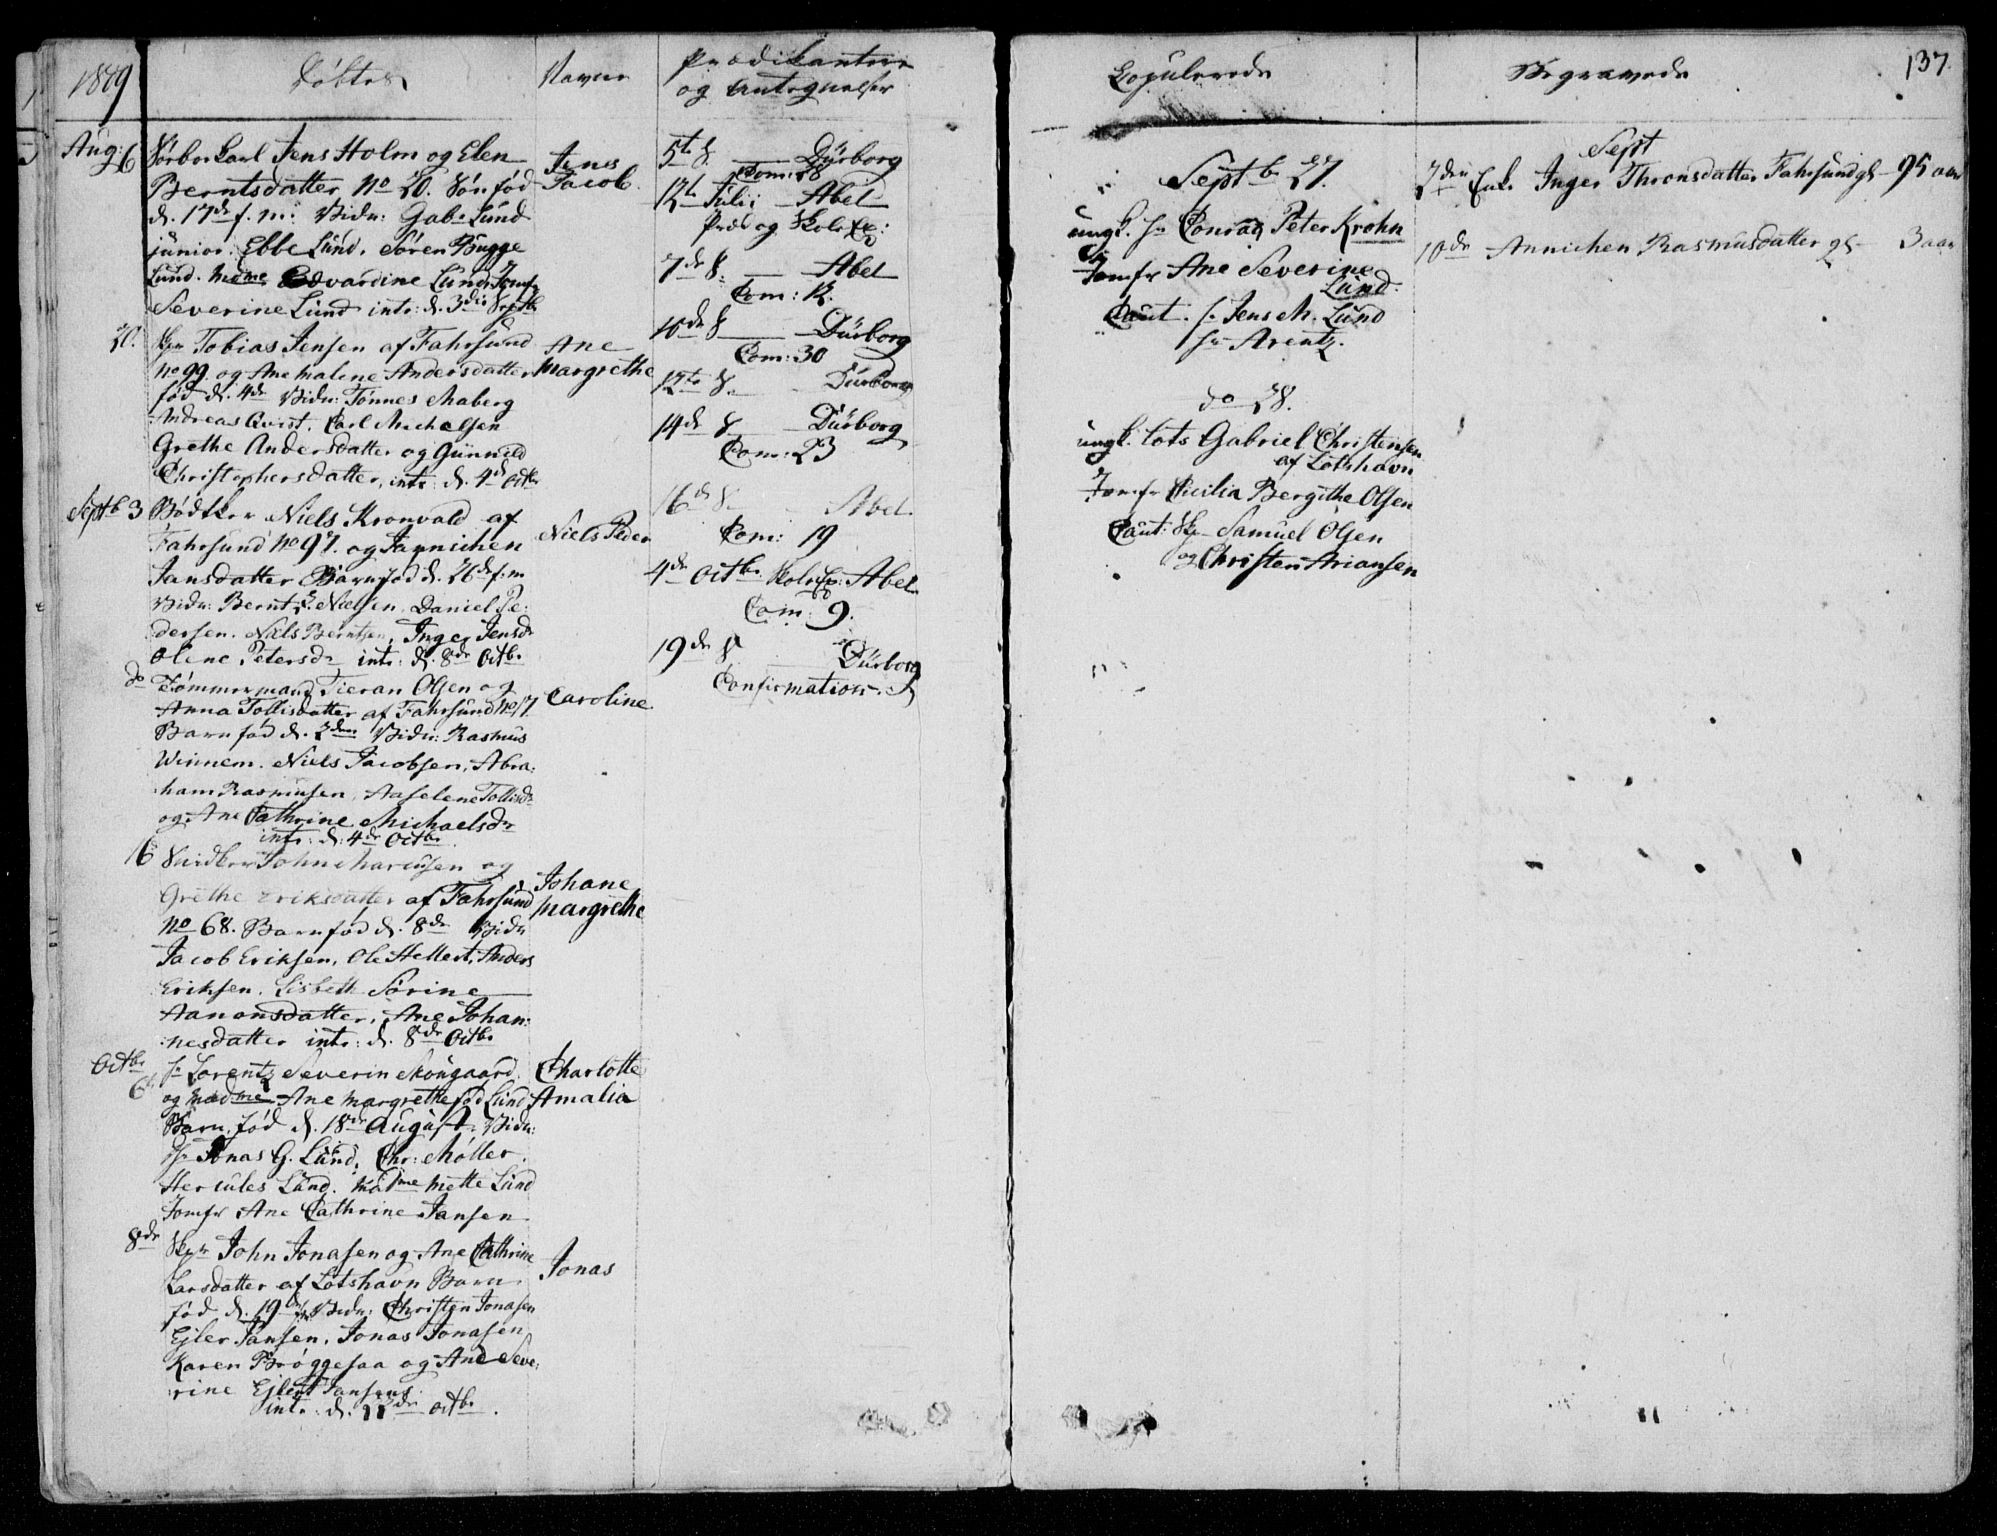 1809
Døbte
Navne
Prædikanter
og Antegnelser
Copulerede
Begravede
137.
Aug: 6
Jens Holm og Elen
Berntsdatter No 20. Søn fød
d. 17de f. m: Vidn: Gab: Lund
junior. Ebbe Lund. Søren Bugge
Lund. Madme Edvardine Lund, Jomfr
Severine Lund intr: d. 3die Septbr
Jens
Jacob.
20.
Skpr Tobias Jensen af Fahrsund
No 99. og Ane Malene Andersdatter
fød d. 4de Vidn: Tønnes Aaberg
Andreas Qvist, Carl Michelsen
Grethe Andersdatter og Gunnild
Christophersdatter, intr: d. 4de Octbr
Ane
Margrethe
Septb 3
Bødker Niels Kronvald af
Fahrsund No 97. og Jannichen
Jansdatter Barn fød d. 26de f. m
Vidn: Bernt Nielsen, Daniel Pe:
dersen. Niels Berntsen, Inger Jensdr
Olene Petersdr intr: d. 8de Octbr
Niels Peder
do
Tømmermand Tieran Olsen og
Anna Tollisdatter af Fahrsund No 17
Barn fød d. 2den Vidn: Rasmus
Winnem. Niels Jacobsen, Abra:
ham Rasmusen, Aaselene Tollisdr
og Ane Cathrine Michaelsdr
intr: d. 4de Octbr.
Caroline
16
Snidker John Marcusen og
Grethe Eriksdatter af Fahrsund
No 68. Barn fød d. 8de Vidn
Jacob Eriksen, Ole Hellert, Anders
Eriksen. Lisbeth Sørine
Aanonsdatter, Ane Johan:
nesdatter intr: d. 8de Octbr
Johane
Margrethe
Octbr
6te
Hr Lorentz Severin Skougaard
og Madme Ane Margrethe fød Lund
Barn, fød d. 18de August. Vidn:
Hr Jonas G. Lund, Chr: Møller.
Hercules Lund. Madme Mette Lund
Jomfr Ane Cathrine Jansen
Charlotte
Amalia
8de
Skpr John Jonasen og Ane Cathrine
Larsdatter af Lotshavn Barn
fød d. 19de Vidn: Christen Jonasen
Ejler Jansen, Jonas Jonasen
Karen Brøggesaa og Ane Seve:
rine Ejlert Jansens
intr: d. 11de Octbr.
Jonas
5te S. Dürborg
Com: 28
12te Julii Abel
Præd og Skole Ex:
7de S. Abel
Com: 12.
10de S Dürborg
Com: 30
12te S. Dürborg
14de S Dürborg
Com: 23
16de S. Abel.
Com: 19
4de Octbr Skole Ex: Abel
Com: 9.
19de S Dürborg
Confirmation.
Septbr 27.
ungk. Hr Conrad Peter Krohn
og
Jomfr Ane Severine
Lund.
Caut. Hr Jens M. Lund
Hr Arentz.
do 28.
ungk. Lots Gabriel Christensen
af Lotshavn
Jomfr Cicilia Bergithe Olsen
Caut: Skp Samuel Olsen
og Christen Ariansen
Sept
7den Enke Inger Thronsdatter Fahrsund gl 95 aar
10de Annichen Rasmusdatter gl 3 aar